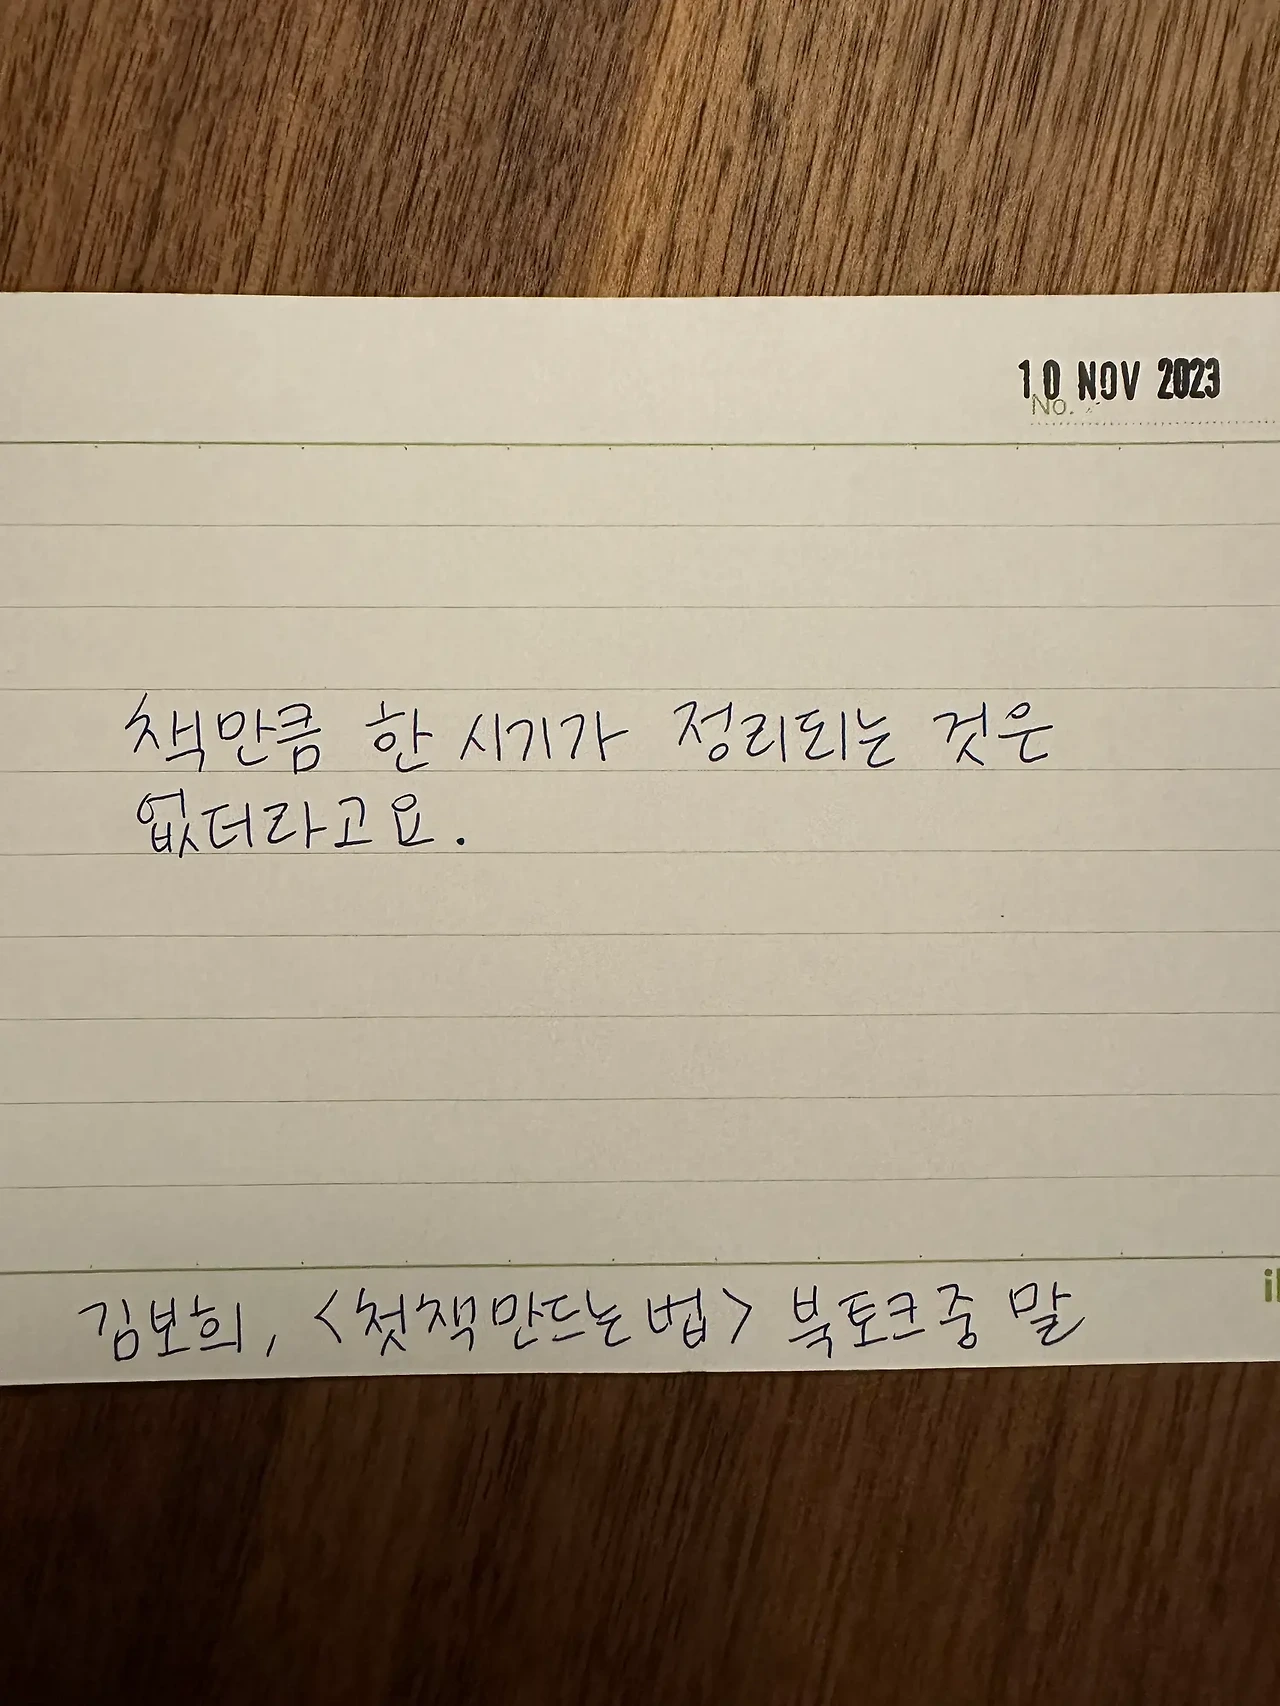 10 NOV 2023
No.
책만큼 한 시기가 정리되는 것은
없더라고요.
김보희, <첫책만드는법> 북토크중 말